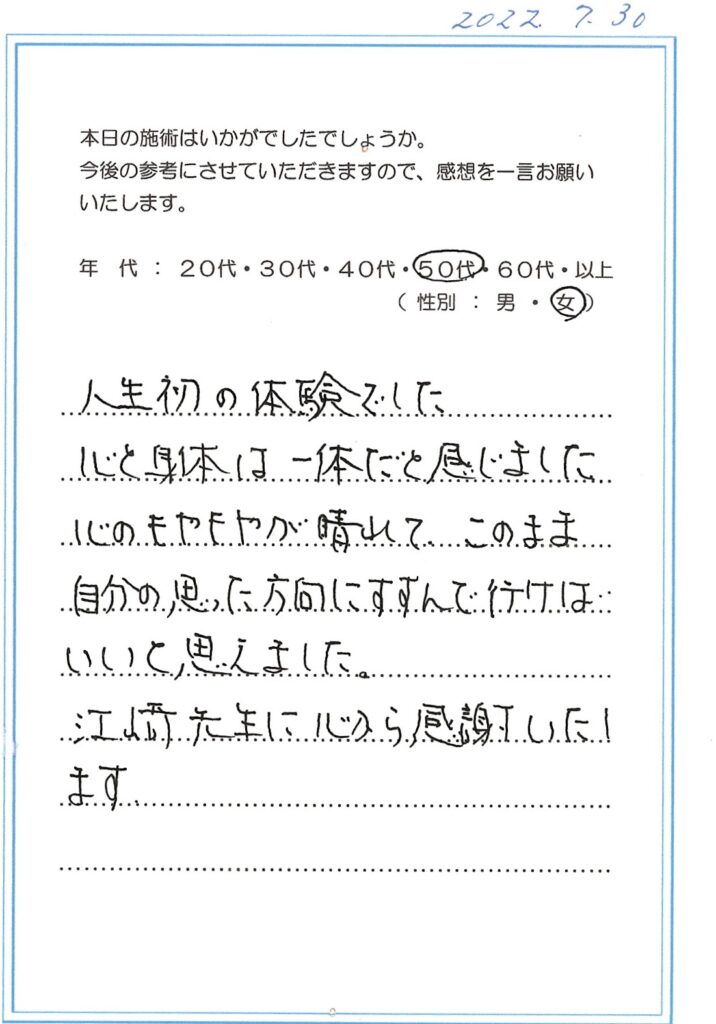 2022.7.30
本日の施術はいかがでしたでしょうか。
今後の参考にさせていただきますので、感想を一言お願い
いたします。
年 代 : 20代・30代・40代・50代・60代・以上
( 性別 : 男 ・ 女 )
人生初の体験でした
心と身体は一体だと感じました
心のモヤモヤが晴れて このまま
自分の思った方向にすすんで行けば
いいと思えました。
江崎先生に心から感謝いたし
ます